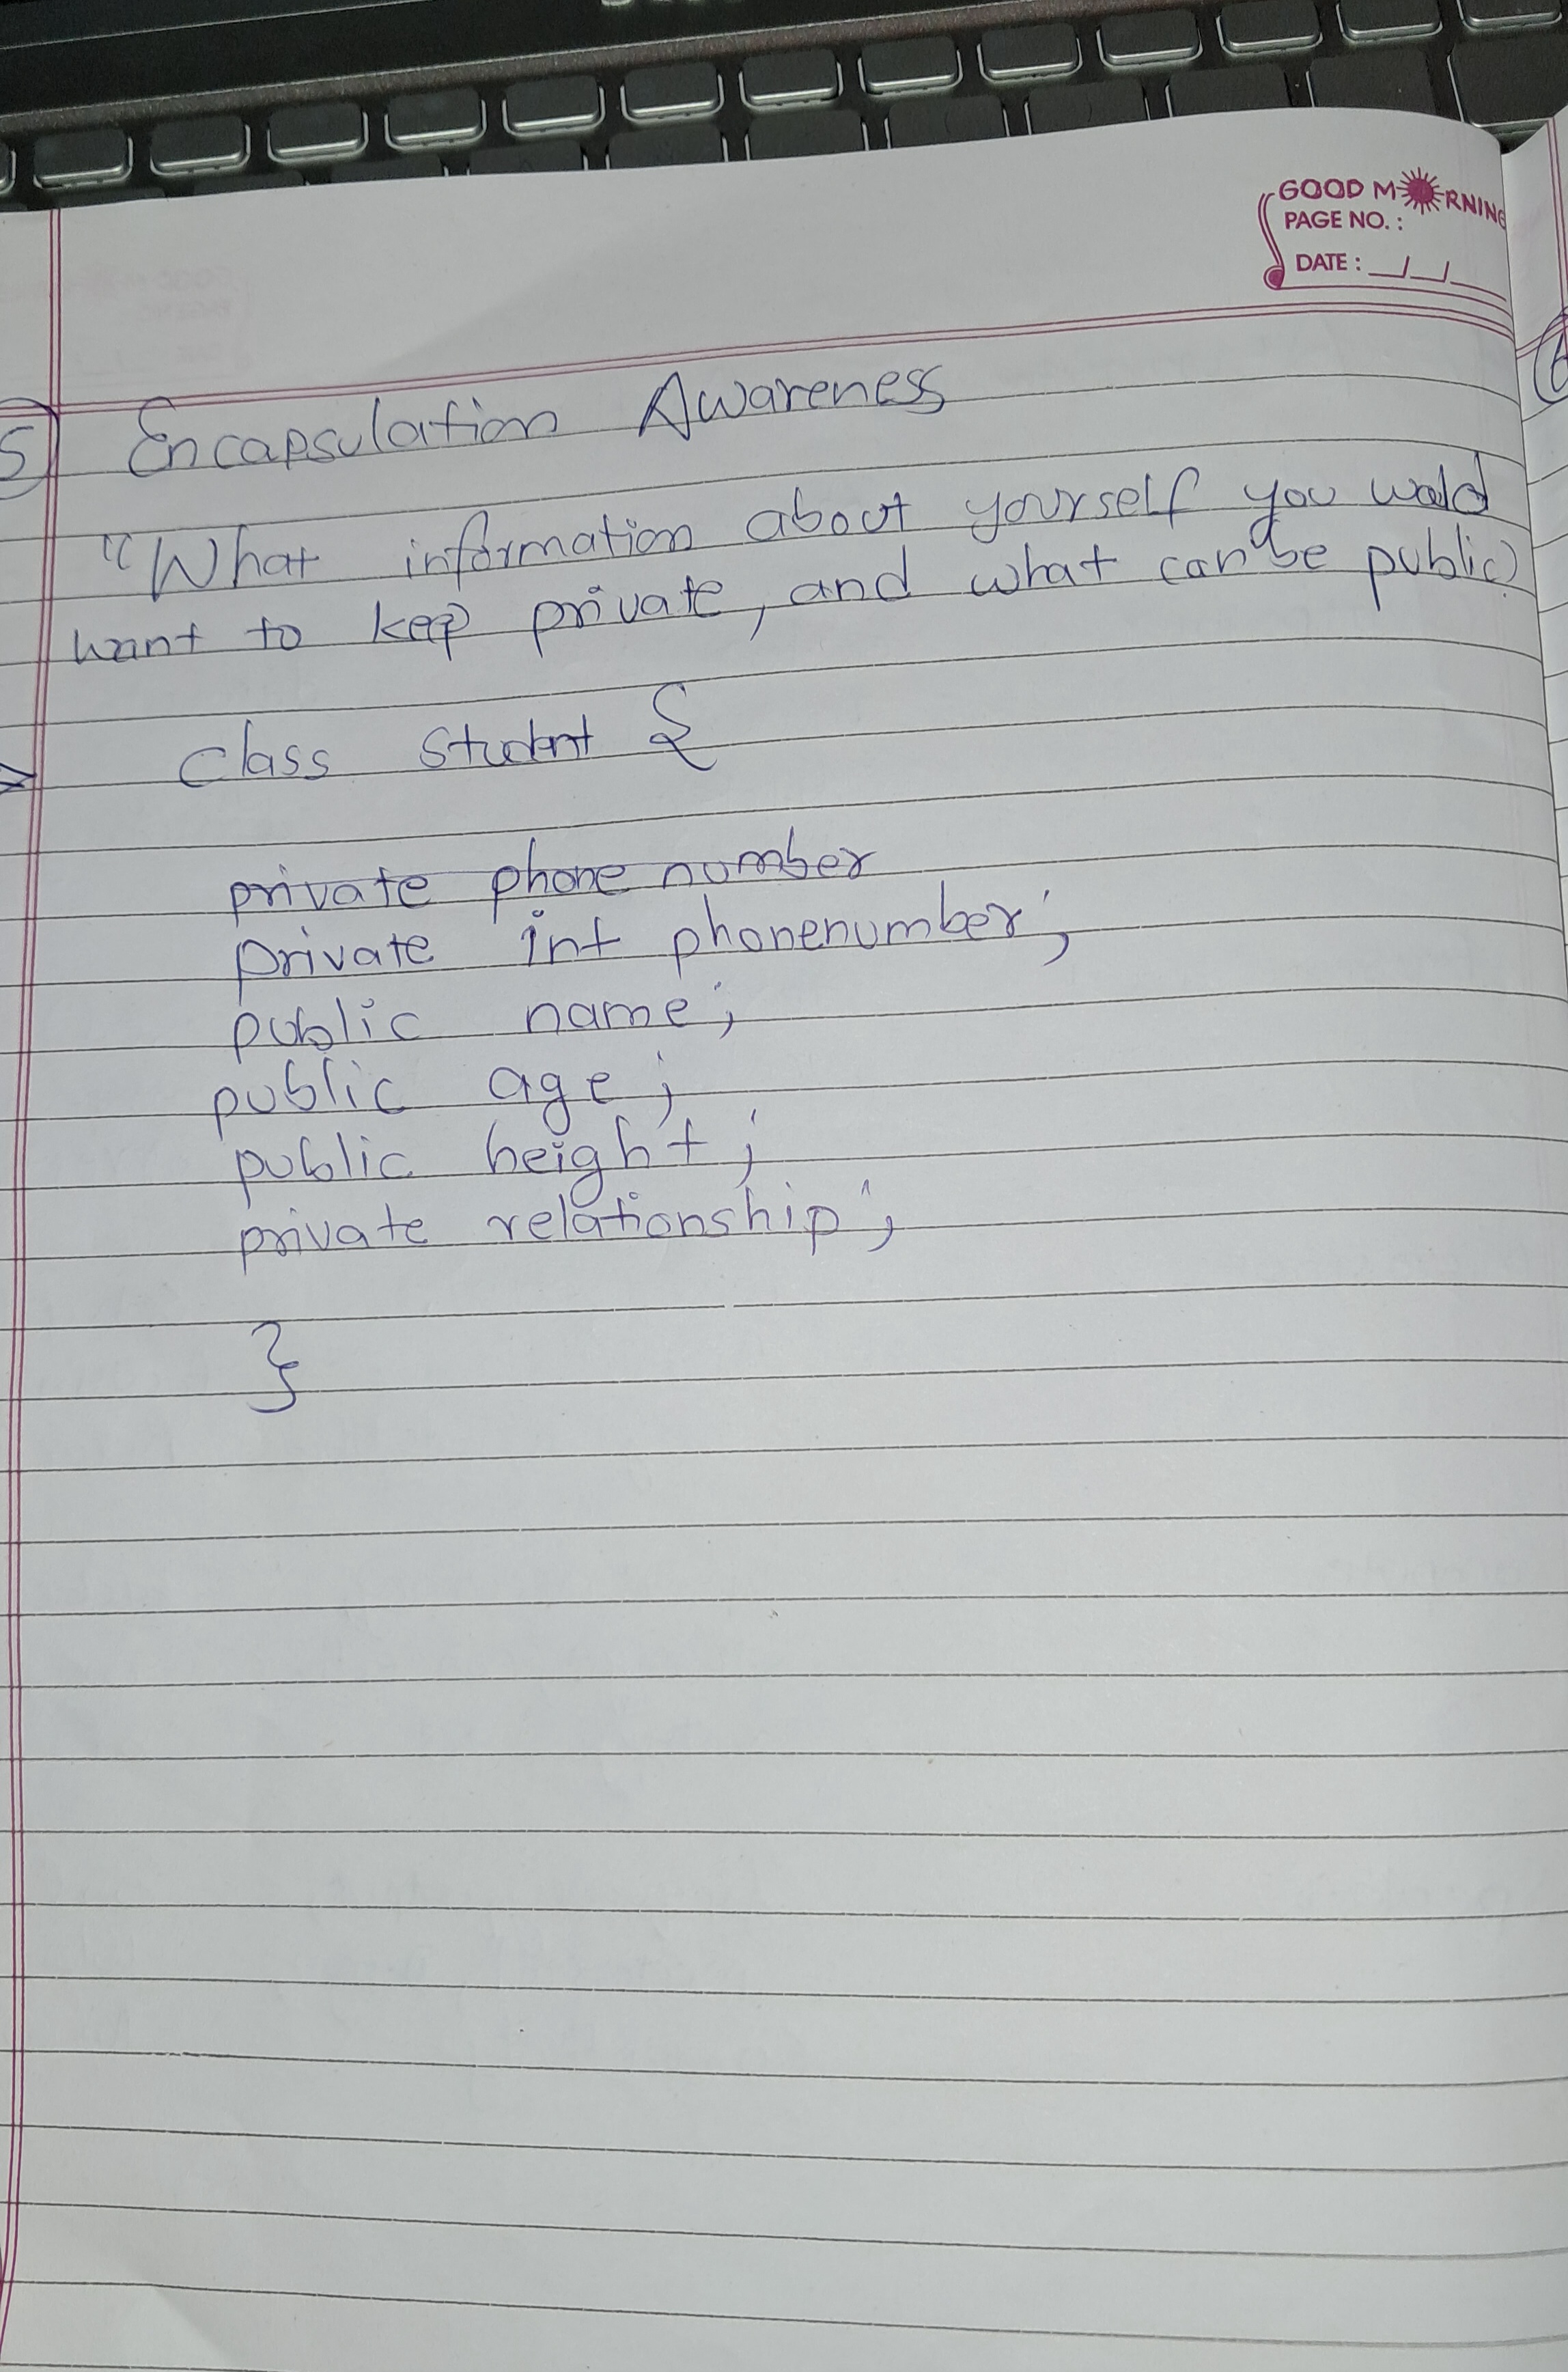 GOOD MORNING
PAGE NO. :
DATE :
5 Encapsulation Awareness
"What information about yourself you would
want to keep private, and what can be public?
class student {
private phone number
private int phonenumber;
public name;
public age;
public height;
private relationship;
}